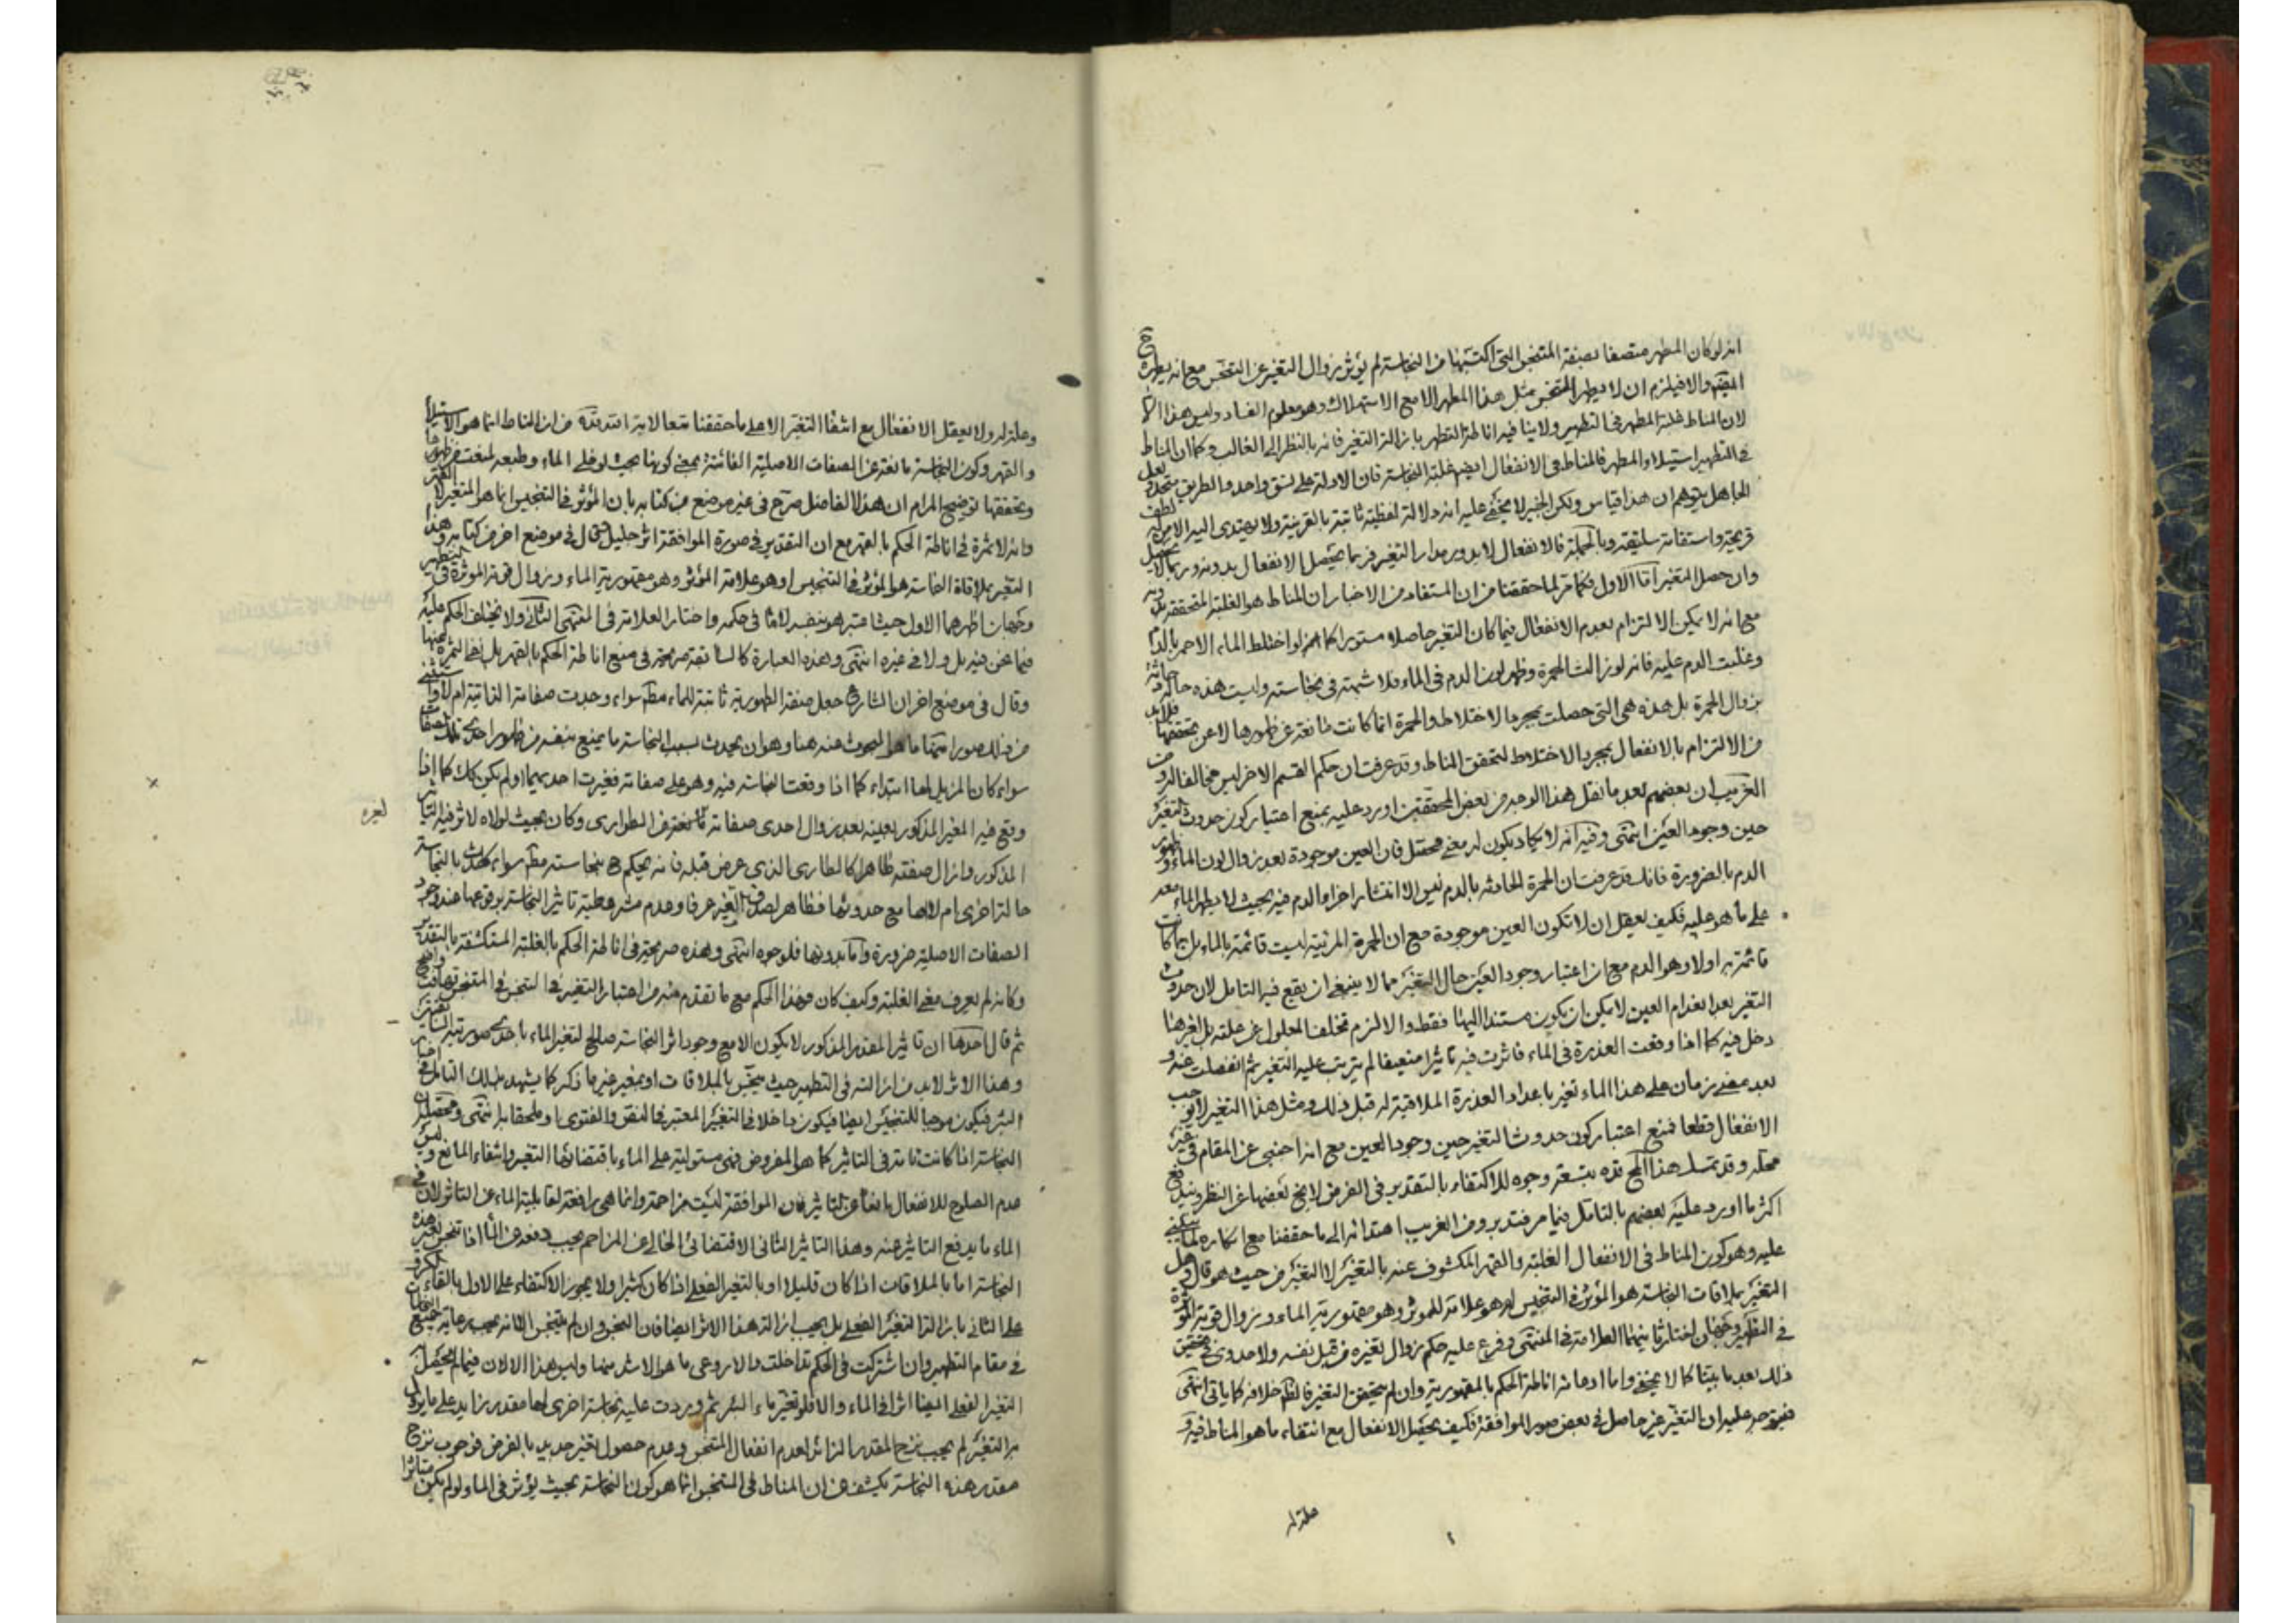 انه لو كان المطهر متصفا بصفة المتنجس التى اكتسبها من النجاسة لم يؤثر زوال التغير عن التنجس مع انه يطهره ح
والا فيلزم ان لا يطهر المتنجس بمثل هذا المطهر الا مع الاستهلاك وهو معلوم الفساد وليس هذا الا
لان المناط غلبة المطهر فى التطهير ولا ينافيه اناطة التطهر بازالة التغير فانه بالنظر الى الغالب وكما ان المناط
فى التطهير استيلاء المطهر فالمناط فى الانفعال ايضا غلبة النجاسة فان الادلة على نسق واحد والطريق متحد ولعل
الجاهل يتوهم ان هذا قياس ولكن الخبير لا يخفى عليه انه دلالة لفظية ثابتة بالقرينة ولا يهتدى اليه الا من له لطف
قريحة واستقامة سليقة وبالجملة فالانفعال لا يدور مدار التغير فربما يحصل الانفعال بدونه وربما لا يحصل
وان حصل التغير اما الاول فكما مر لما حققنا من ان المستفاد من الاخبار ان المناط هو الغلبة المتحققة
مع انه لا يمكن الالتزام بعدم الانفعال فيما كان التغير حاصلا مستورا كما لو اختلط الماء الاحمر بالدم
وغلبت الدم عليه فانه لو زالت الحمرة وظهر لون الدم فى الماء فلا شبهة فى نجاسته وليست هذه حالة حادثة
بزوال الحمرة بل هذه هى التى حصلت بمجرد الاختلاط والحمرة انما كانت مانعة عن ظهورها لا عن تحققها فلابد
من الالتزام بالانفعال بمجرد الاختلاط لتحقق المناط وقد عرفت ان حكم القسم الاخر ليس مخالفا له ومن
الغريب ان بعضهم بعد ما نقل هذا الوجه من بعض المحققين اورد عليه بمنع اعتبار كون حدوث التغير
حين وجود العين انتهى وفيه انه لا يكاد يكون له معنى محصل فان العين موجودة بعد زوال لون الماء وظهور
الدم بالضرورة فانك قد عرفت ان الحمرة الحادثة بالدم ليس الا انتشار اجزاء الدم فيه بحيث لا يظهر الماء معه
على ما هو عليه فكيف يعقل ان لا تكون العين موجودة مع ان الحمرة المرئية ليست قائمة بالماء بل بما كانت
قائمة به اولا وهو الدم مع ان اعتبار وجود العين حال التغير مما لا ينبغى ان يقع فيه التامل لان حدوث
التغير بعد انعدام العين لا يمكن ان يكون مستندا اليها فقط والا لزم تخلف المعلول عن علته بل لغيرها
دخل فيه كما اذا وقعت العذرة فى الماء فاثرت فيه تاثيرا ضعيفا لم يترتب عليه التغير ثم انفصلت عنه و
بعد مضى زمان على هذا الماء تغير باعداد العذرة الملاقية له قبل ذلك ومثل هذا التغير لا يوجب
الانفعال قطعا فمنع اعتبار كون حدوث التغير حين وجود العين مع انه اجنبى عن المقام فى غير
محله وقد تمسك هذا المحقق قده بتسعة وجوه للاكتفاء بالتقدير فى الفرض لا يخ بعضها عن النظر ويندفع
اكثر ما اورد عليه بعضهم بالتامل فيما مر فتدبر ومن الغريب اهتدائه الى ما حققنا مع انكاره لما يبتنى
عليه وهو كون المناط فى الانفعال الغلبة والقهر المكشوف عنه بالتغير لا التغير من حيث هو قال وهل
التغير بملاقات النجاسة هو المؤثر فى التنجيس او هو علامة للموثر وهو مقهورية الماء وزوال قوته المؤثرة
فى التطهير وجهان اختار ثانيهما العلامة فى المنتهى وفرع عليه حكم زوال تغيره من قبل نفسه ولا جدوى فى تحقيق
ذلك بعد ما بينا كما لا يخفى واما ادعائه اناطة الحكم بالمقهورية وان لم يتحقق التغير فالظ خلافه كما ياتى انتهى
فيتوجه عليه ان التغير غير حاصل فى بعض صور الموافقة فكيف يحصل الانفعال مع انتفاء ما هو المناط فيه و
علة له
وعلة له ولا يعقل الانفعال مع انتفاء التغير الا على ما حققنا من ان المناط انما هو الاستيلاء
والقهر وكون النجاسة مانعة عن الصفات الاصلية بمعنى كونها بحيث لو خلى الماء وطبعه لمنعت من ظهورها
وتحققها توضيح المرام ان هذا الفاضل صرح فى غير موضع من كتابه بان المؤثر فى التنجيس انما هو التغير لا القهر
وانه لا ثمرة فى اناطة الحكم بالقهر مع ان التقدير فى صورة الموافقة اثر جليل فقال فى موضع اخر من كتابه وهذا
التغير بملاقاة النجاسة هو المؤثر فى التنجيس او هو علامة المؤثر وهو مقهورية الماء وزوال قوته المؤثرة فى التطهير
وجهان اظهرهما الاول حيث اعتبر هو بنفسه لاما فى حكمه واختار العلامة فى المنتهى الثانى ولا يختلف الحكم عليه
فيما نحن فيه بل ولا فى غيره انتهى وهذه العبارة كالسابقة صريحة فى منع اناطة الحكم بالقهر بل نفى الثمرة
وقال فى موضع اخر ان الشارع جعل صفة الطهورية ثابتة للماء مط سواء وجدت صفاته الذاتية ام لا
سواء كان المزيل لها ابتداء كما اذا وقعت نجاسة فيه وهو على صفاته فغيرت احديهما او لم يكن كك كما اذا
وقع فيه المغير المذكور بعينه بعد زوال احدى صفاته وكان بحيث لولاه لاثر فيه
لغيره
المذكور وازال صفته ظاهرا كالطارى الذى عرض قبله فانه يحكم ح بنجاسته مط سواء
حالة اخرى ام لا اما مع حدوثها فظاهر لصدق التغير عرفا وعدم مشروطية تاثير النجاسة بوقوعها عند وجود
الصفات الاصلية ضرورة واما بدونها فلوجوه انتهى وهذه صريحة فى اناطة الحكم بالغلبة المستكشفة بالتقدير
وكانه لم يعرف معنى الغلبة وكيف كان فهذا الحكم مع ما تقدم منه من اعتبار التغير فى التنجس تهافت واضح
ثم قال احدها ان تاثير المقدر المذكور لا يكون الا مع وجود اثر النجاسة صالح لتغير الماء
وهذا الاثر لابد من ازالته فى التطهير حيث ينجس بالملاقات او بغير ما ذكر كما يشهد بذلك التامل فى اخبار
البئر فيكون موجبا للتنجيس ايضا فيكون داخلا فى التغير المعتبر فى النص والفتوى او ملحقا به انتهى ومحصله ان
النجاسة اذا كانت تامة فى التاثير كما هو المفروض فهى مستولية على الماء باقتضائها التغير وانتفاء المانع وليس
عدم الصلوح للانفعال مانعا عن التاثير فان الموافقة ليست مزاحمة وانما هى رافعة لقابلية الماء عن التاثر لان فى
الماء ما يدفع التاثير عنه وهذا التاثير الثانى الاقتضائى الخالى عن المزاحم يجب دفعه
النجاسة اما بالملاقات اذا كان قليلا او بالتغير الفعلى اذا كان كثيرا ولا يجوز الاكتفاء على الاول بالقاء الكر و
على الثانى بازالة التغير الفعلى بل يجب ازالة هذا الاثر ايضا
فى مقام التطهير وان اشتركت فى الحكم تداخلت والا روعى ما هو الاشد منها وليس هذا الا لان فيما لم يحصل
التغير الفعلى ايضا اثرا فى الماء والا فلو تغير ماء البئر ثم وردت عليه نجاسة اخرى لها مقدر زايد على ما يزول
به التغير لم يجب نزح المقدر الزائد لعدم انفعال المتنجس وعدم حصول تغير جديد بالفرض فوجوب نزح
مقدر هذه النجاسة يكشف عن ان المناط فى التنجس انما هو كون النجاسة بحيث يؤثر فى الماء لو لم يكن متاثرا